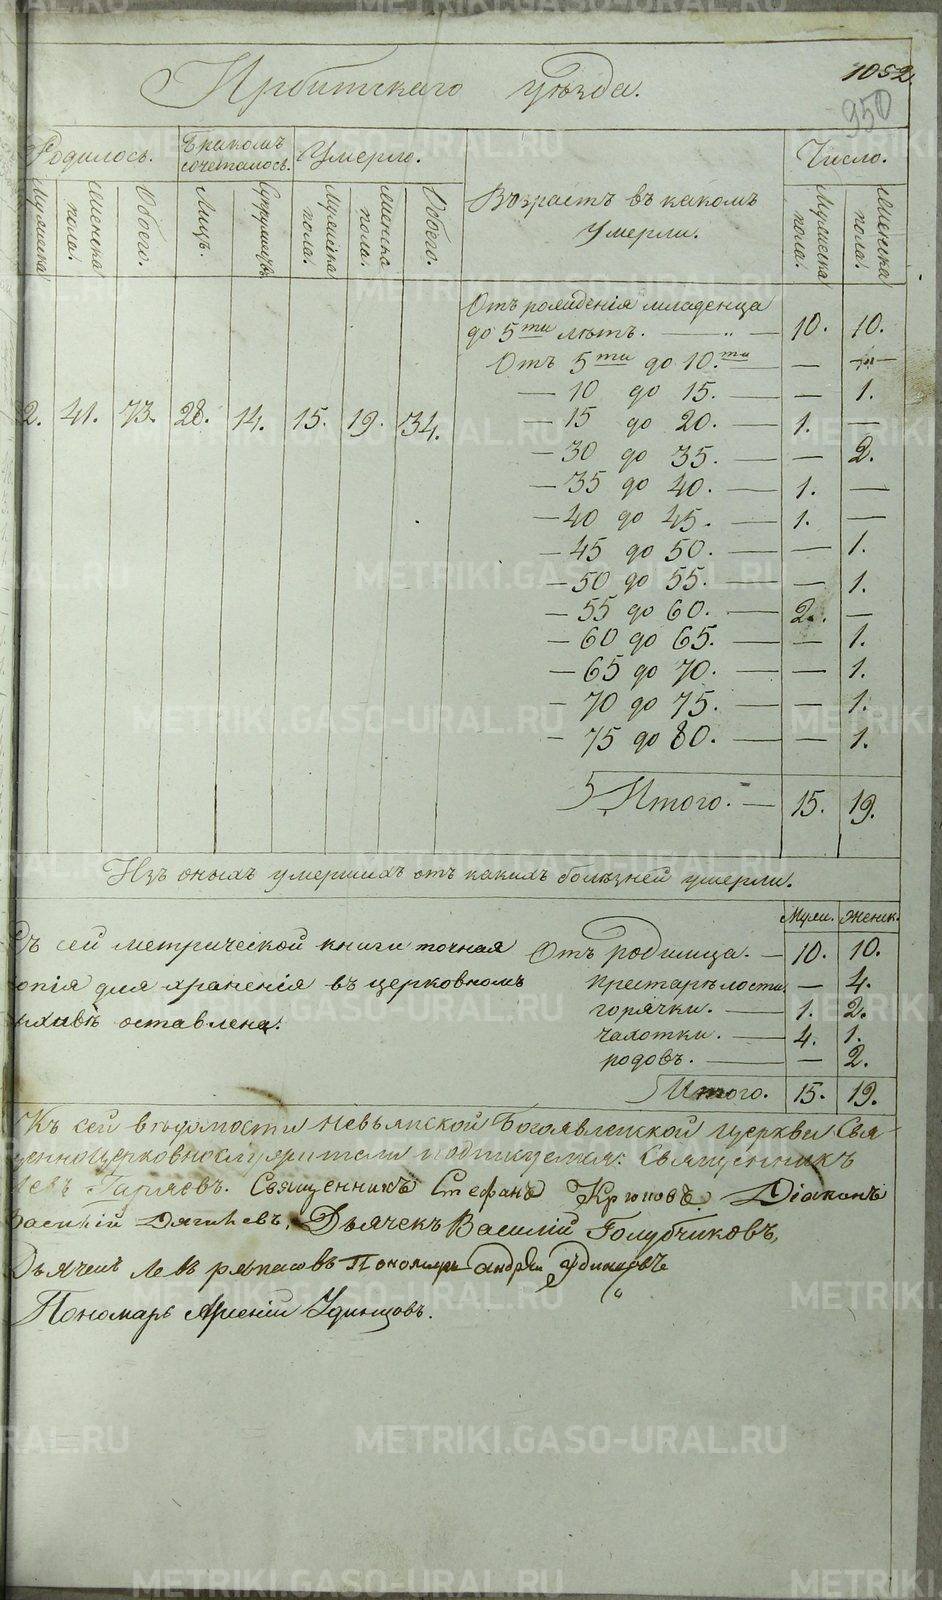 Ирбитскаго уѣзда.
1052.
950
Родилось.
Бракомъ сочеталось.
Умерло.
Возрастъ въ какомъ умерли.
Число.
Мужеска
Женска пола.
Обоего.
Лицъ.
Супружествъ
Мужеска пола.
Женска пола.
Обоего.
Мужеска пола.
Женска пола.
Отъ рожденія младенца
до 5ти лѣтъ. — „ — 10. 10.
Отъ 5ти до 10.ти — —
— 10 до 15. — — 1.
2. 41. 73. 28. 14. 15. 19. 34.
— 15 до 20. — 1. —
— 30 до 35. — — 2.
— 35 до 40. — 1. —
— 40 до 45. — 1. —
— 45 до 50. — — 1.
— 50 до 55. — — 1.
— 55 до 60. — 2. —
— 60 до 65. — — 1.
— 65 до 70. — — 1.
— 70 до 75. — — 1.
— 75 до 80. — — 1.
Итого. — 15. 19.
Изъ оныхъ умершихъ отъ какихъ болѣзней умерли.
Муж. Женск.
Съ сей метрической книги точная
копія для храненія въ церковномъ
архивѣ оставлена.
Отъ родимца. — 10. 10.
престарѣлости — 4.
горячки. — 1. 2.
чахотки. — 4. 1.
родовъ. — — 2.
Итого. 15. 19.
Къ сей вѣдомости Невьянской Богоявленской церкви Свя-
щенноцерковнослужители подписуемся: Священникъ
Левъ Гаряевъ. Священникъ Стефанъ Крюковъ. Діаконъ
Василій Дягилевъ, Дьячекъ Василій Голубчиковъ,
Дьячекъ Левъ Ряпасовъ Пономарь Андрей Удинцовъ
Пономарь Арсеній Удинцовъ.
METRIKI.GASO-URAL.RU